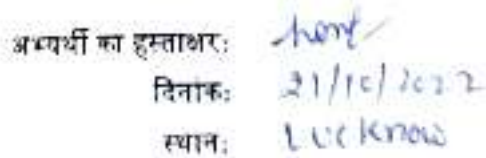 अभ्यर्थी का हस्ताक्षर:
दिनांक: 21/10/2022
स्थान: Lucknow